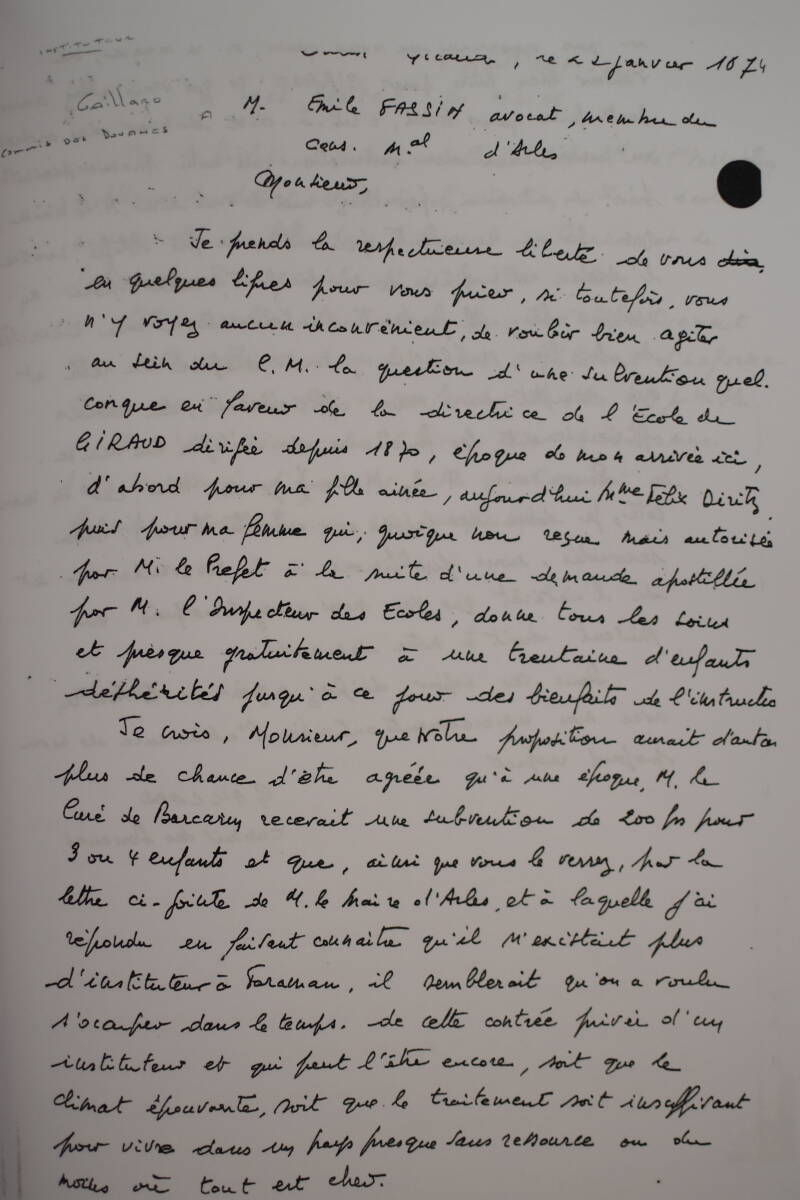 INSTITUTEUR
janvier 1874
Gaillard
Commis des Douanes
à M. Emile FASSIN avocat, membre du
Cons. Mal d'Arles
Monsieur,
Je prends la respectueuse liberté de vous
en quelques lignes pour vous prier, si toutefois, vous
n'y voyez aucun inconvénient, de vouloir bien agiter
au sein du C.M. la question d'une subvention quel-
conque en faveur de la directrice de l'Ecole de
GIRAUD dirigée depuis 1870, époque de mon arrivée ici,
d'abord pour ma fille aînée, aujourd'hui Mme Félix
puis pour ma femme qui, quoique non reçue mais autorisée
par M. le Préfet à la suite d'une demande apostillée
par M. l'Inspecteur des Ecoles, donne tous les soins
et presque gratuitement à une trentaine d'enfants
déshérités jusqu'à ce jour des bienfaits de l'instructio
Je crois, Monsieur, que votre proposition aurait d'autan
plus de chance d'être agréée qu'à une époque, M. le
Curé de Barcarin recevait une subvention de 200 frs pour
3 ou 4 enfants et que, ainsi que vous le verrez, par la
lettre ci-jointe de M. le Maire d'Arles, et à laquelle j'ai
répondu en faisant connaître qu'il n'existait plus
d'instituteur à Faraman, il semblerait qu'on a voulu
s'occuper dans le temps. de cette contrée privée d'un
instituteur et qui peut l'être encore, soit que le
climat épouvante, soit que le traitement soit insuffisant
pour vivre dans un pays presque sans ressource ou du
moins où tout est cher.